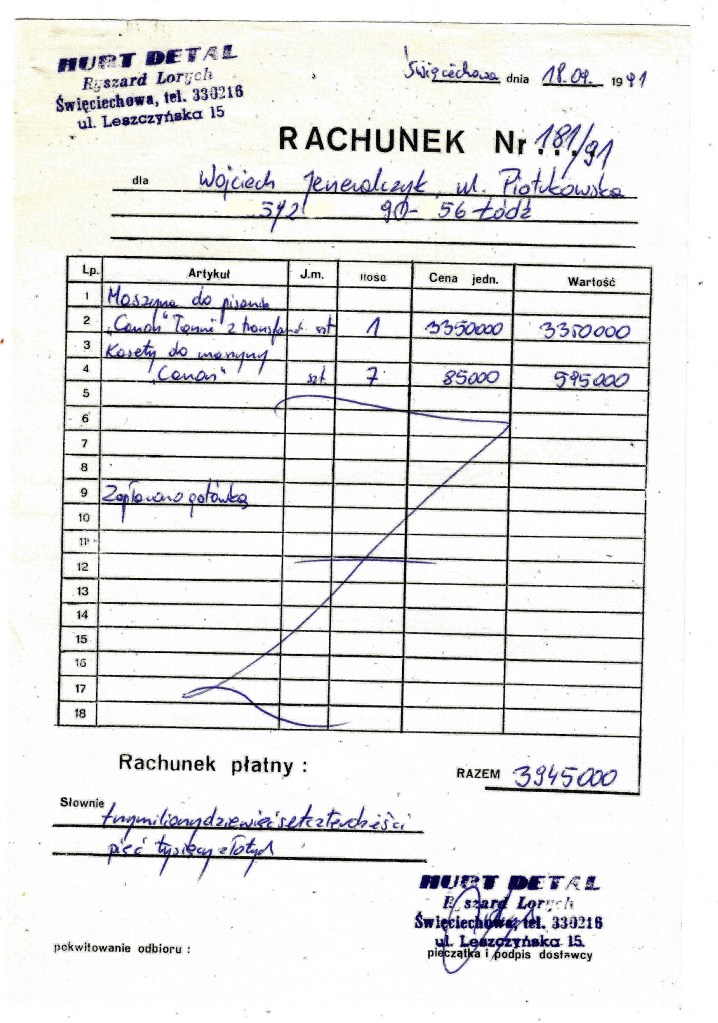 HURT DETAL
Ryszard Lorych
Święciechowa, tel. 330216
ul. Leszczyńska 15
Święciechowa dnia 18.09. 1991
RACHUNEK Nr 181/91
dla Wojciech Jeneralczyk, ul. Piotrkowska
90- 56 Łódź
Lp. Artykuł J.m. Ilość Cena jedn. Wartość
1 Maszyna do pisania
2 „Canon" z szt 1 3350000 3350000
3 Kasety do maszyny
4 „Canon" szt. 7 85000 595000
5
6
7
8
9 Zapłacono gotówką
10
11
12
13
14
15
16
17
18
Rachunek płatny :
RAZEM 3945000
Słownie trzymiliony dziewięćset czterdzieści
pięć tysięcy złotych
HURT DETAL
Ryszard Lorych
Święciechowa, tel. 330216
ul. Leszczyńska 15.
pokwitowanie odbioru :
pieczątka i podpis dostawcy